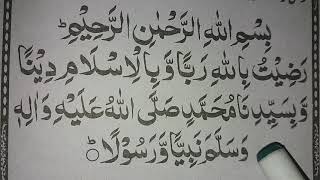 بِسْمِ اللهِ الرَّحْمٰنِ الرَّحِيْمِ ؕ
رَضِيْتُ بِاللهِ رَبًّا وَّبِالْاِسْلَامِ دِيْنًا
وَّبِسَيِّدِنَا مُحَمَّدٍ صَلَّى اللهُ عَلَيْهِ وَاٰلِهٖ
وَسَلَّمَ نَبِيًّا وَّرَسُوْلًا ؕ